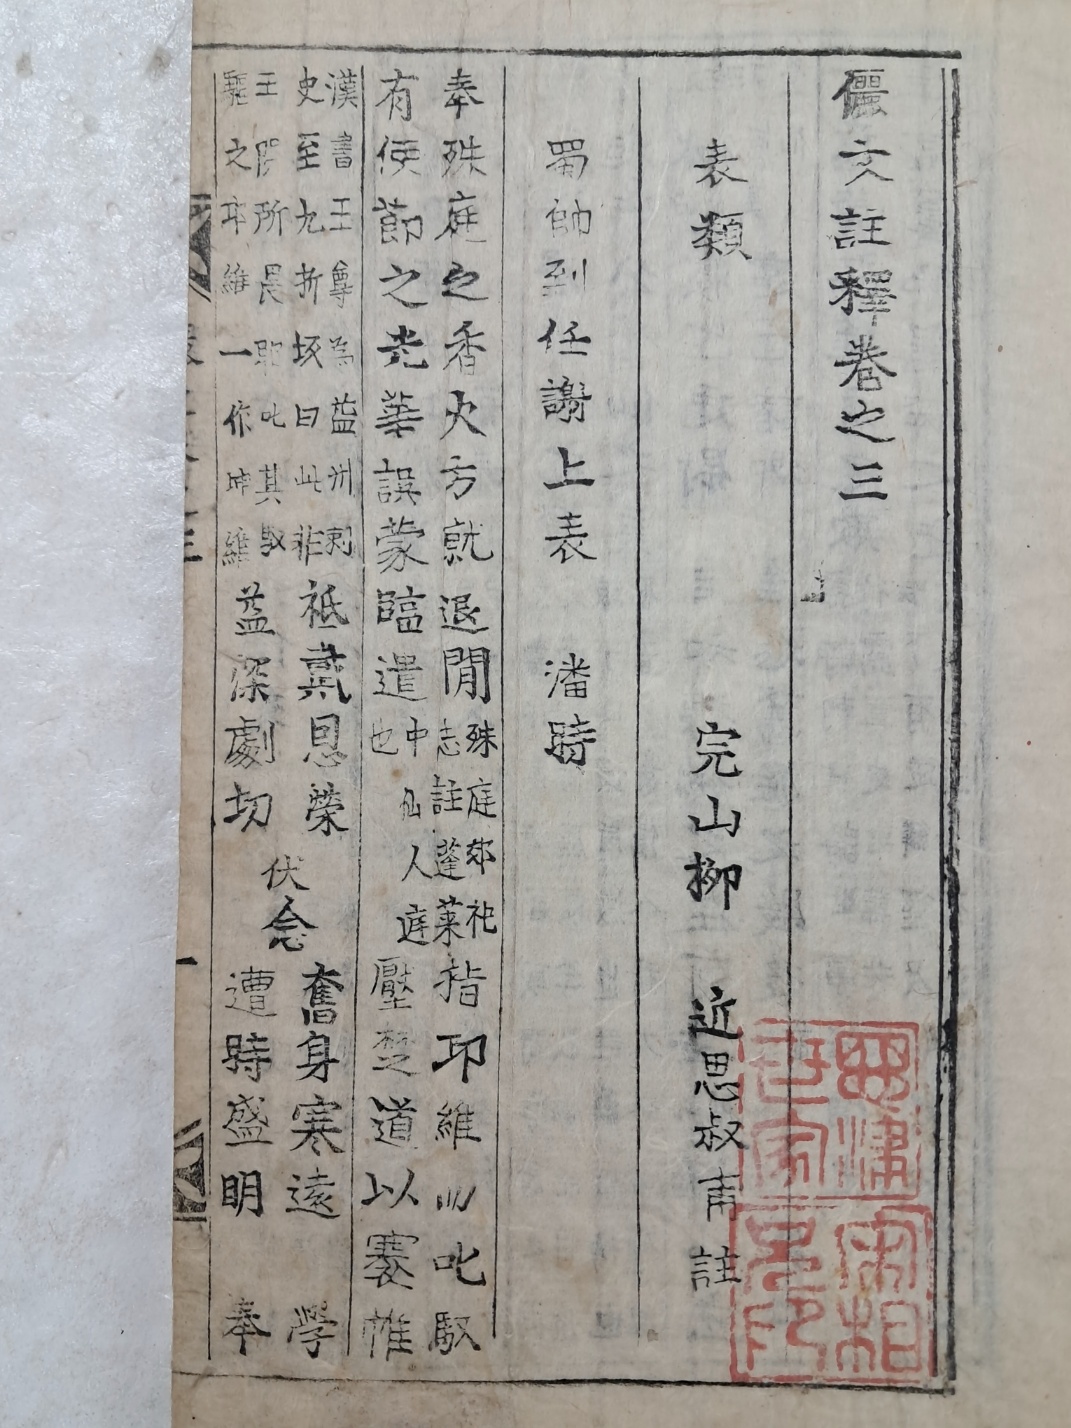 儷文註釋卷之三
表類 完山柳 近思叔甫 註
蜀帥到任謝上表 潘時
奉殊庭之香火方就退閒
有使節之光華誤蒙臨遣
殊庭郊祀
志註蓬萊
中仙人庭
也
指邛維而叱馭
壓楚道以褰帷
漢書王尊為益州刺
史至九折坂曰此非
王陽所畏耶叱其馭
驅之邛維一作時維
祗戴恩榮
益深劇切
伏念
奮身寒遠 學
遭時盛明 奉
世家
宗相